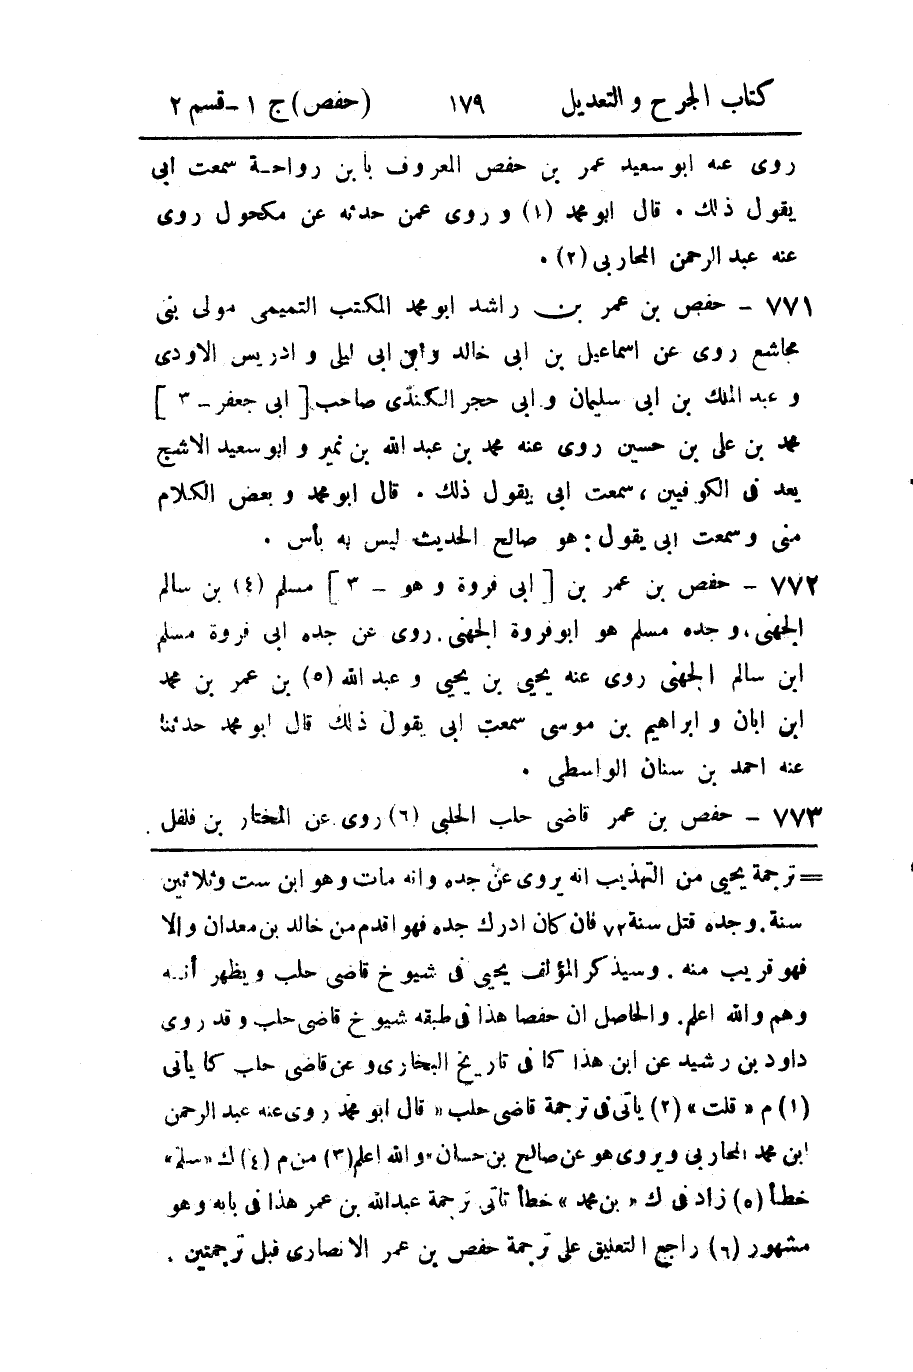 كتاب الجرح والتعديل ١٧٩ (حفص) ج ١ - قسم ٢
روى عنه ابو سعيد عمر بن حفص المعروف بابن رواحة سمعت ابى
يقول ذلك . قال ابو محمد (١) و روى عمن حدثه عن مكحول روى
عنه عبد الرحمن المحاربى (٢) .
٧٧١ - حفص بن عمر بن راشد ابو محمد المكتب التميمى مولى بنى
مجاشع روى عن اسماعيل بن ابى خالد وابن ابى ليلى و ادريس الاودى
و عبد الملك بن ابى سليمان و ابى حجر الكندى صاحب [ ابى جعفر - ٣ ]
محمد بن على بن حسين روى عنه محمد بن عبد الله بن نمير و ابو سعيد الاشج
يعد فى الكوفيين ، سمعت ابى يقول ذلك . قال ابو محمد و بعض الكلام
منى و سمعت ابى يقول : هو صالح الحديث ليس به بأس .
٧٧٢ - حفص بن عمر بن [ ابى فروة و هو - ٣ ] مسلم (٤) بن سالم
الجهنى ، و جده مسلم هو ابو فروة الجهنى . روى عن جده ابى فروة مسلم
ابن سالم الجهنى روى عنه يحيى بن يحيى و عبد الله (٥) بن عمر بن محمد
ابن ابان و ابراهيم بن موسى سمعت ابى يقول ذلك قال ابو محمد حدثنا
عنه احمد بن سنان الواسطى .
٧٧٣ - حفص بن عمر قاضى حلب الحلبى (٦) روى عن المختار بن فلفل .
= ترجمة يحيى من التهذيب انه يروى عن جده وانه مات وهو ابن ست وثلاثين
سنة . وجده قتل سنة ٧٢ فان كان ادرك جده فهو اقدم من خالد بن معدان والا
فهو قريب منه . وسيذكر المؤلف يحيى فى شيوخ قاضى حلب ويظهر أنه
وهم والله اعلم . والحاصل ان حفصا هذا فى طبقه شيوخ قاضى حلب وقد روى
داود بن رشيد عن ابن هذا كما فى تاريخ البخارى وعن قاضى حلب كما يأتى
(١) م « قلت » (٢) يأتى فى ترجمة قاضى حلب « قال ابو محمد روى عنه عبد الرحمن
ابن محمد المحاربى ويروى هو عن صالح بن حسان » والله اعلم (٣) من م (٤) ك « سلم »
خطأ (٥) زاد فى ك « بن محمد » خطأ تأتى ترجمة عبدالله بن عمر هذا فى بابه وهو
مشهور (٦) راجع التعليق على ترجمة حفص بن عمر الانصارى قبل ترجمتين .